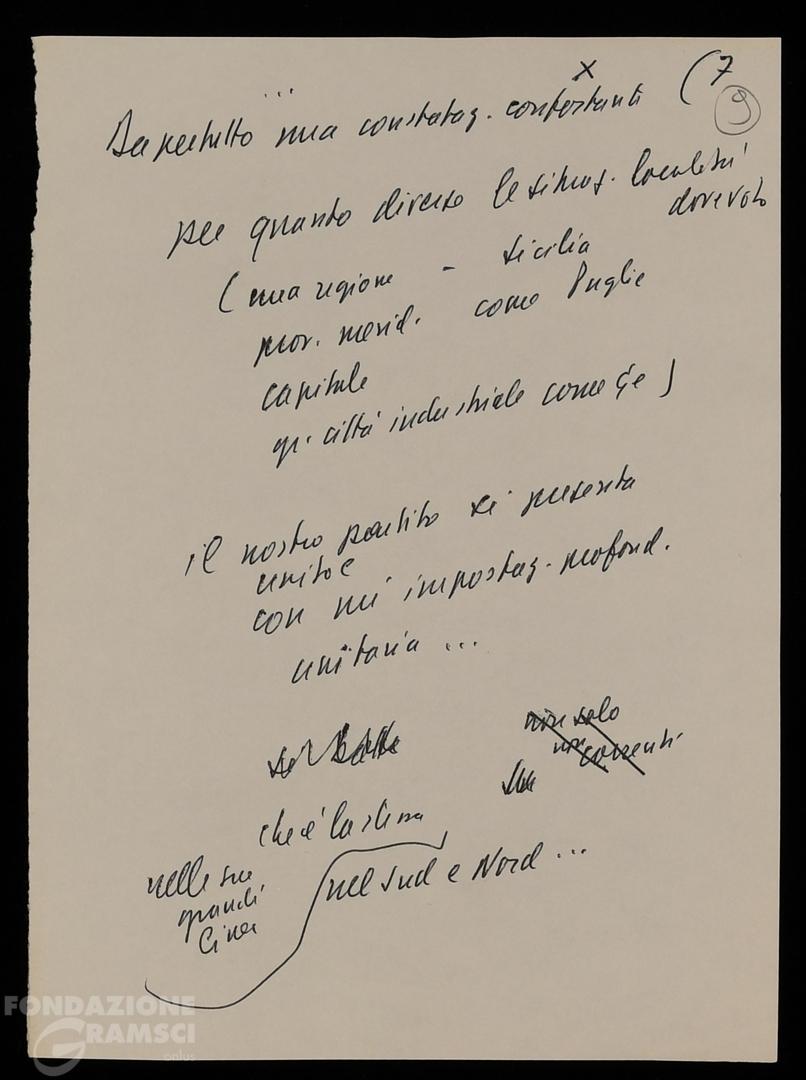 x (7
...
Dapertutto una constataz. confortanti 9
per quanto diverse le situaz. locali sui
dove voto
( una regione - Sicilia
prov. merid. come Puglie
capitale
gr. città industriale come Ge )
il nostro partito si presenta
unito e
con un' impostaz. profond.
unitaria ...
si batte
non solo
non correnti
che è la stessa
nelle sue
grandi
linee
nel Sud e Nord ...
FONDAZIONE
GRAMSCI
onlus